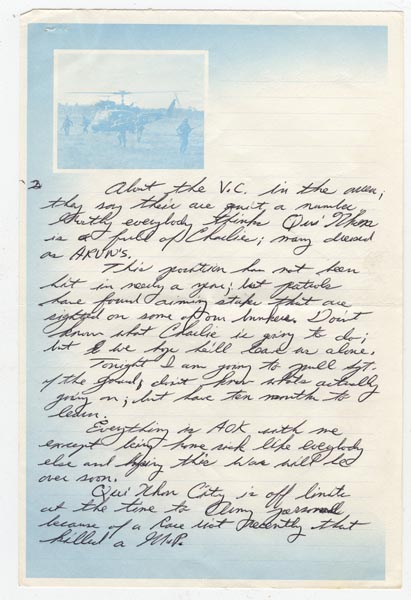 3
About the V.C. in the area;
they say their are quit a number.
everybody thinks Qui Nhon
is full of Charlie; many dressed
as ARVN's.
This position has not been
hit in nearly a year; but patrols
have found aiming stakes that are
sighted on some of our bunkers. Don't
know what Charlie is going to do;
but we hope he'll leave us alone.
Tonight I am going to pull Sgt.
of the guard, don't know whats actually
going on; but have ten months to
learn.
Everything is AOK with me
except being home sick like everybody
else and hoping this War will be
over soon.
Qui Nhon City is off limits
at the time to Army personnel
because of a Race riot recently that
killed a M.P.